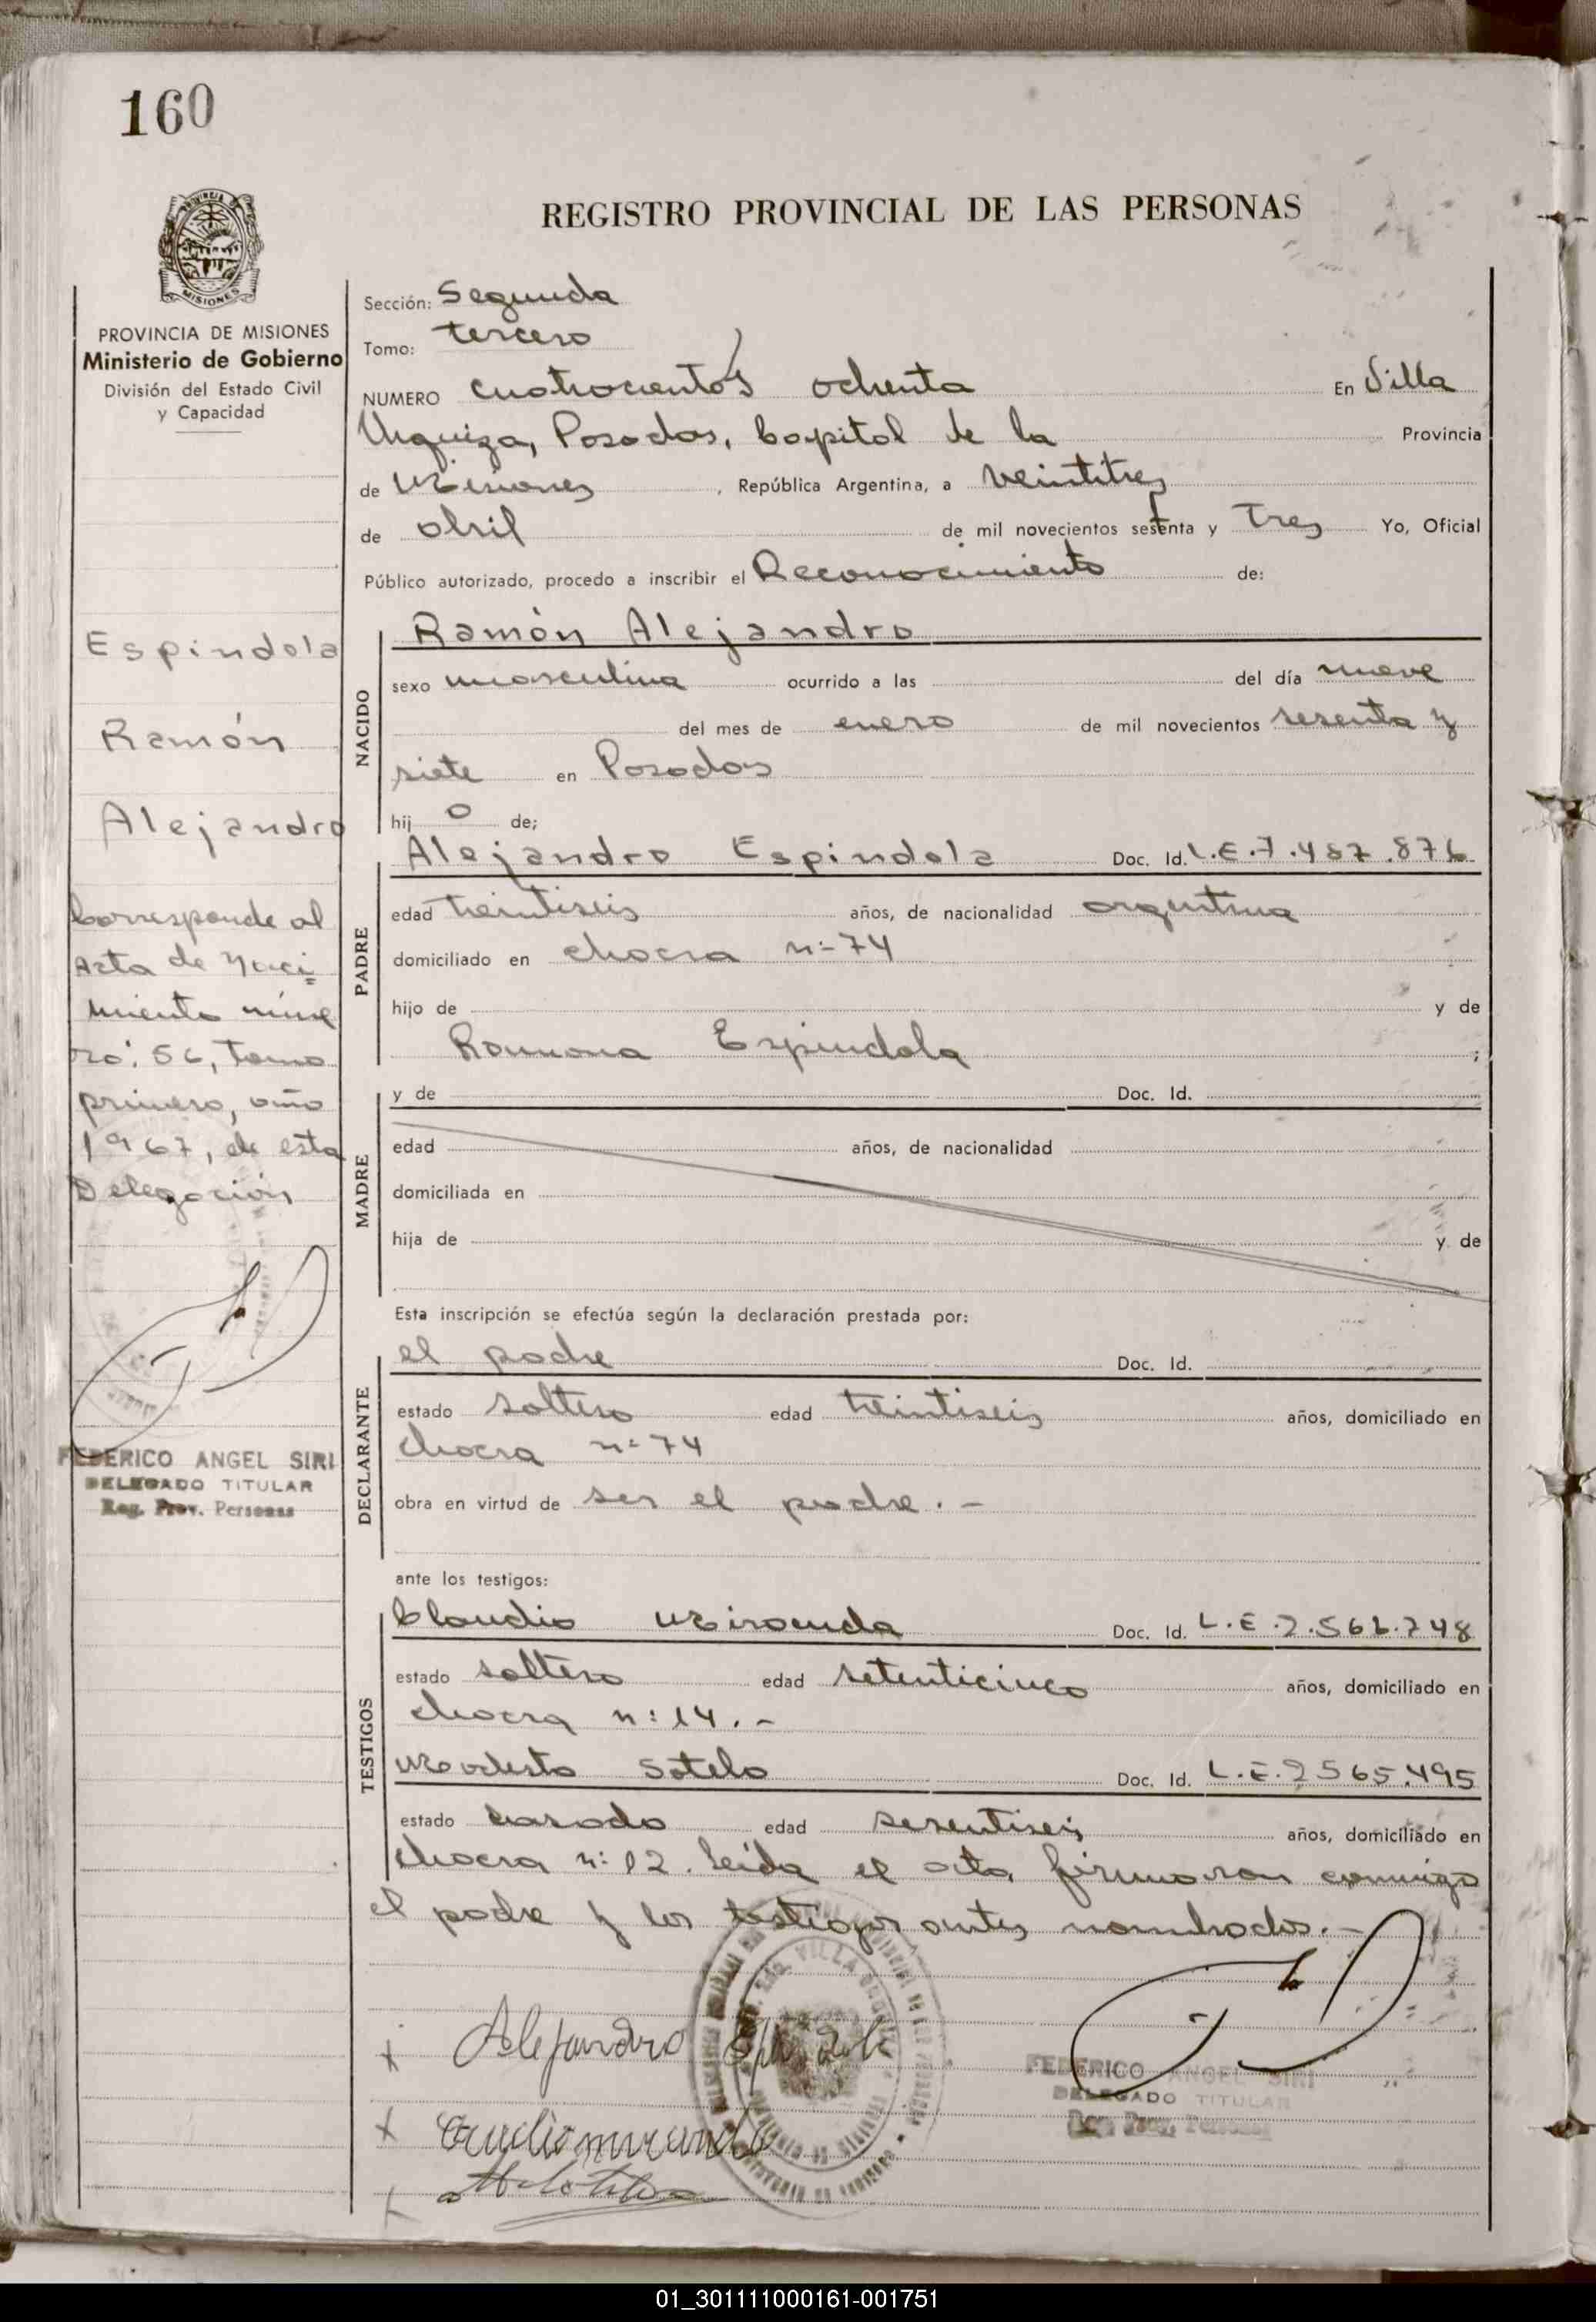 160
PROVINCIA DE MISIONES
MISIONES
Ministerio de Gobierno
División del Estado Civil
y Capacidad
REGISTRO PROVINCIAL DE LAS PERSONAS
Sección: Segunda
Tomo: tercero
NUMERO cuatrocientos ochenta En Villa
Urquiza, Posadas, Capital de la Provincia
de Misiones, República Argentina, a veintitres
de abril de mil novecientos setenta y tres Yo, Oficial
Público autorizado, procedo a inscribir el Reconocimiento de:
Espindola
Ramón
Alejandro
Corresponde al
Acta de Naci
miento núme
ro: 56, Tomo
primero, año
1967, de esta
Delegación
FEDERICO ANGEL SIRI
DELEGADO TITULAR
Reg. Prov. Personas
NACIDO
Ramón Alejandro
sexo masculino ocurrido a las del día nueve
del mes de enero de mil novecientos sesenta y
siete en Posadas
hij o de;
PADRE
Alejandro Espindola Doc. Id. L.E.7.487.876
edad treintiseis años, de nacionalidad argentina
domiciliado en chacra n=74
hijo de y de
Ramona Espindola ;
MADRE
y de Doc. Id.
edad años, de nacionalidad
domiciliada en
hija de y de
Esta inscripción se efectúa según la declaración prestada por:
DECLARANTE
el padre Doc. Id.
estado soltero edad treintiseis años, domiciliado en
chacra n=74
obra en virtud de ser el padre.-
ante los testigos:
TESTIGOS
Claudio Miranda Doc. Id. L.E.2.566.748
estado soltero edad setenticinco años, domiciliado en
chacra n:14.-
Modesto Sotelo Doc. Id. L.E.2565.495
estado casado edad sesentiseis años, domiciliado en
chacra n:12. Leída el acta, firmaron conmigo
el padre y los testigos antes nombrados.-
x Alejandro Espindola
x Claudio miranda
FEDERICO ANGEL SIRI
DELEGADO TITULAR
Reg. Prov. Personas
01_301111000161-001751